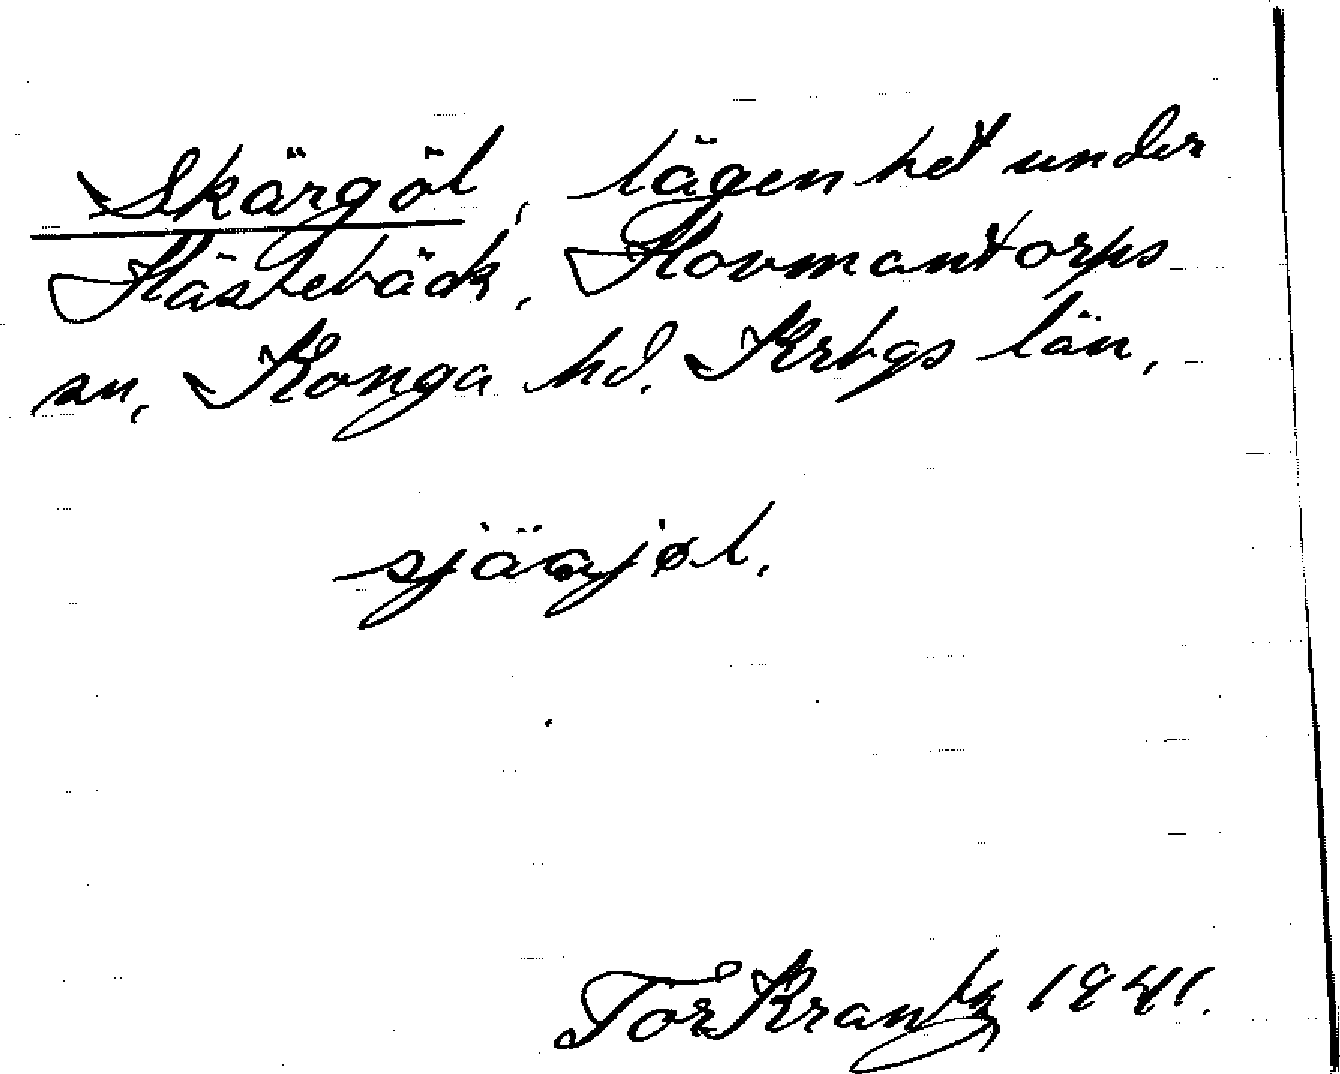 Skärgöl, lägenhet under
Hästebäck, Hovmantorps
sn, Konga hd. Krbgs län,
Tor Krantz 1941.